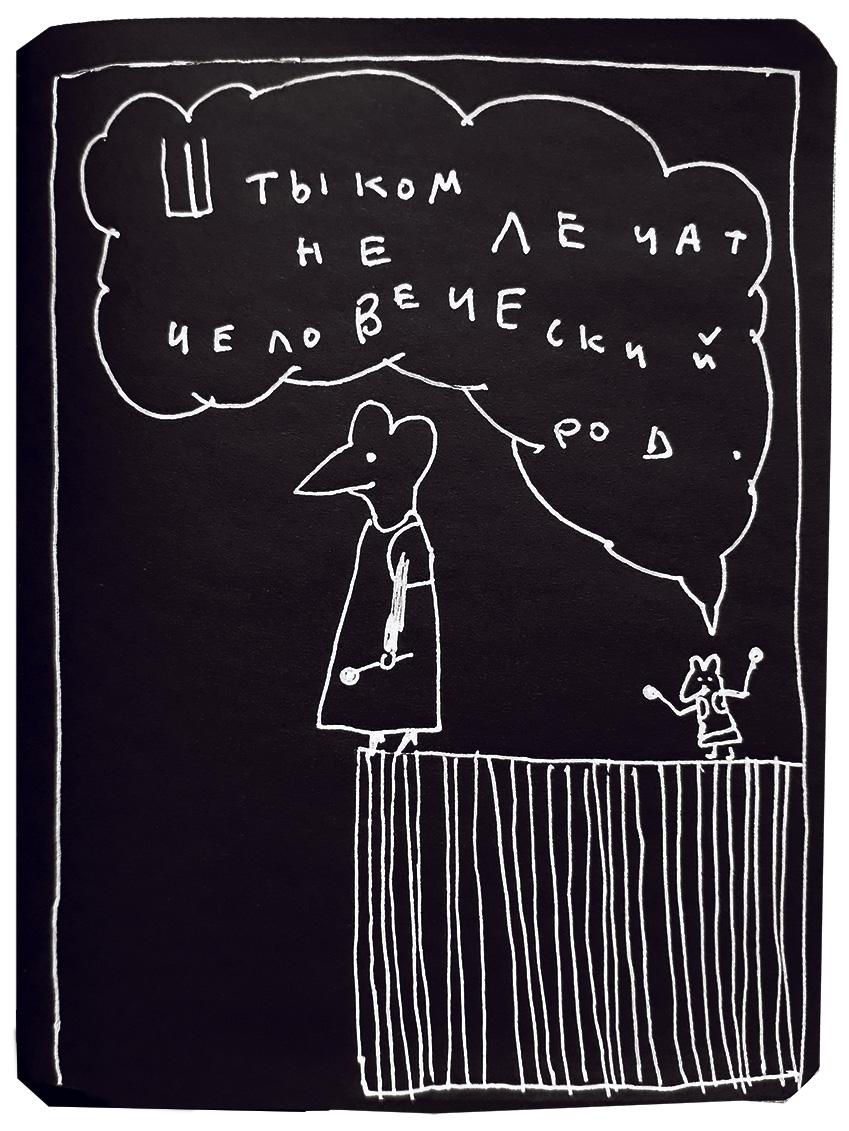 Штыком
не лечат
человеческий
род.